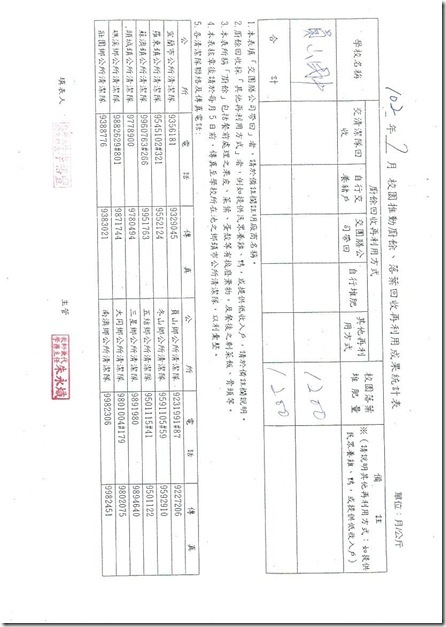 102年7月 校園推動廚餘、落葉回收再利用成果統計表
單位：月/公斤
學校名稱
廚餘回收再利用方式
交清潔隊回收
自行交養豬戶
交團膳公司帶回
自行堆肥
其他再利用方式
校園落葉堆肥量
備註
※（請說明其他再利用方式：如提供民眾養雞、鴨，或提供低收入戶）
1200
合計
1200
1.本表填「交團膳公司帶回」者，請於備註欄註明廠商名稱。
2.廚餘回收採「其他再利用方式」者，例如提供民眾養雞、鴨，或提供低收入戶，請於備註欄說明。
3.本表所稱「廚餘」包括餐前處理之果皮、菜葉、蛋殼等有機廢棄物，及餐後之剩菜飯、骨頭等。
4.本表核章後請於每月5日前，傳真至學校所在地之鄉鎮市公所清潔隊，以利彙整。
5.各清潔隊聯絡及傳真電話：
公所 電話 傳真 公所 電話 傳真
宜蘭市公所清潔隊 9356181 9329045 員山鄉公所清潔隊 9231991#87 9227206
羅東鎮公所清潔隊 9545102#321 9552124 冬山鄉公所清潔隊 9591105#59 9592910
蘇澳鎮公所清潔隊 9960763#266 9951763 五結鄉公所清潔隊 9501115#41 9501122
頭城鎮公所清潔隊 9778900 9780492 三星鄉公所清潔隊 9891980 9894640
礁溪鄉公所清潔隊 9882629#801 9871744 大同鄉公所清潔隊 9801004#179 9802075
壯圍鄉公所清潔隊 9388776 9383021 南澳鄉公所清潔隊 9982306 9982451
填表人
主管
朱永